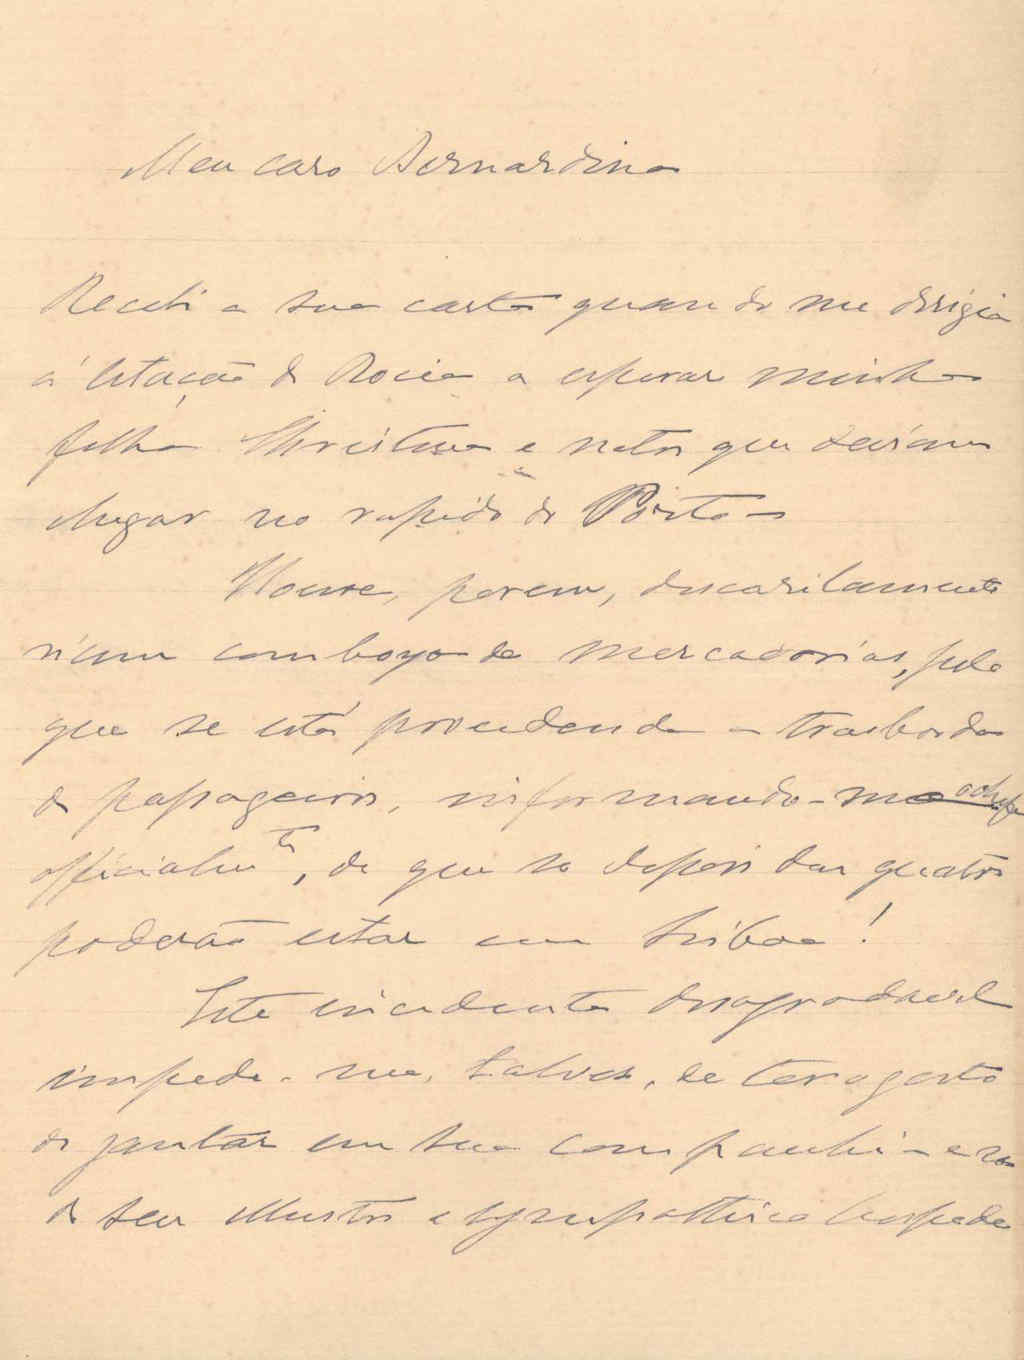 Meu caro Bernardino
Recebi a sua carta quando me dirigia
á estação do Rocio a esperar minha
filha Christina e netos que deviam
chegar no rapido do Porto –
Houve, porem, descarilamento
n'um comboyo de mercadorias, pelo
que se está procedendo a trasbordo
de passageiros, informando-me o chefe
officialm.te, de que só depois das quatro
poderão estar em Lisboa!
Este incidente desagradavel
impede-me, talvez, de ter o gosto
de jantar em sua companhia e na
do seu illustre e sympathico hospede